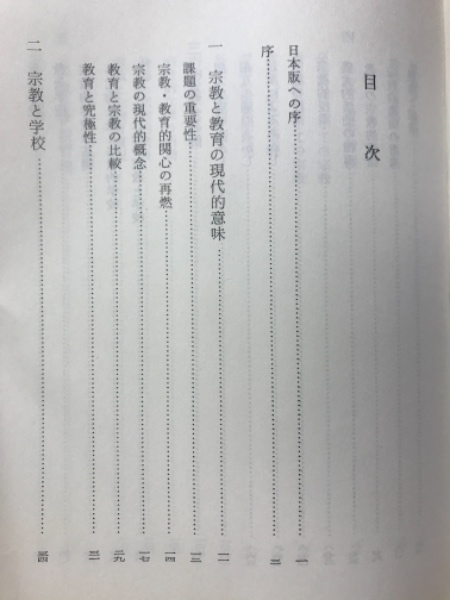 目次
日本版への序 一
序 三
一 宗教と教育の現代的意味 一一
課題の重要性 一三
宗教・教育的関心の再燃 一四
宗教の現代的概念 一七
教育と宗教の比較 二九
教育と究極性
二 宗教と学校